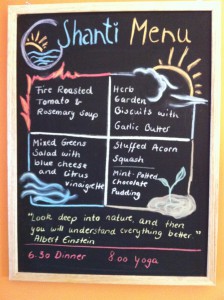 Shanti Menu
Fire Roasted
Tomato &
Rosemary Soup
Herb
Garden
Biscuits with
Garlic Butter
Mixed Greens
Salad with
blue cheese
and citrus
vinaigette
Stuffed Acorn
Squash
Mint-Potted
Chocolate
Pudding
"Look deep into nature, and then
you will understand everything better."
Albert Einstein
6.30 Dinner 8.00 Yoga